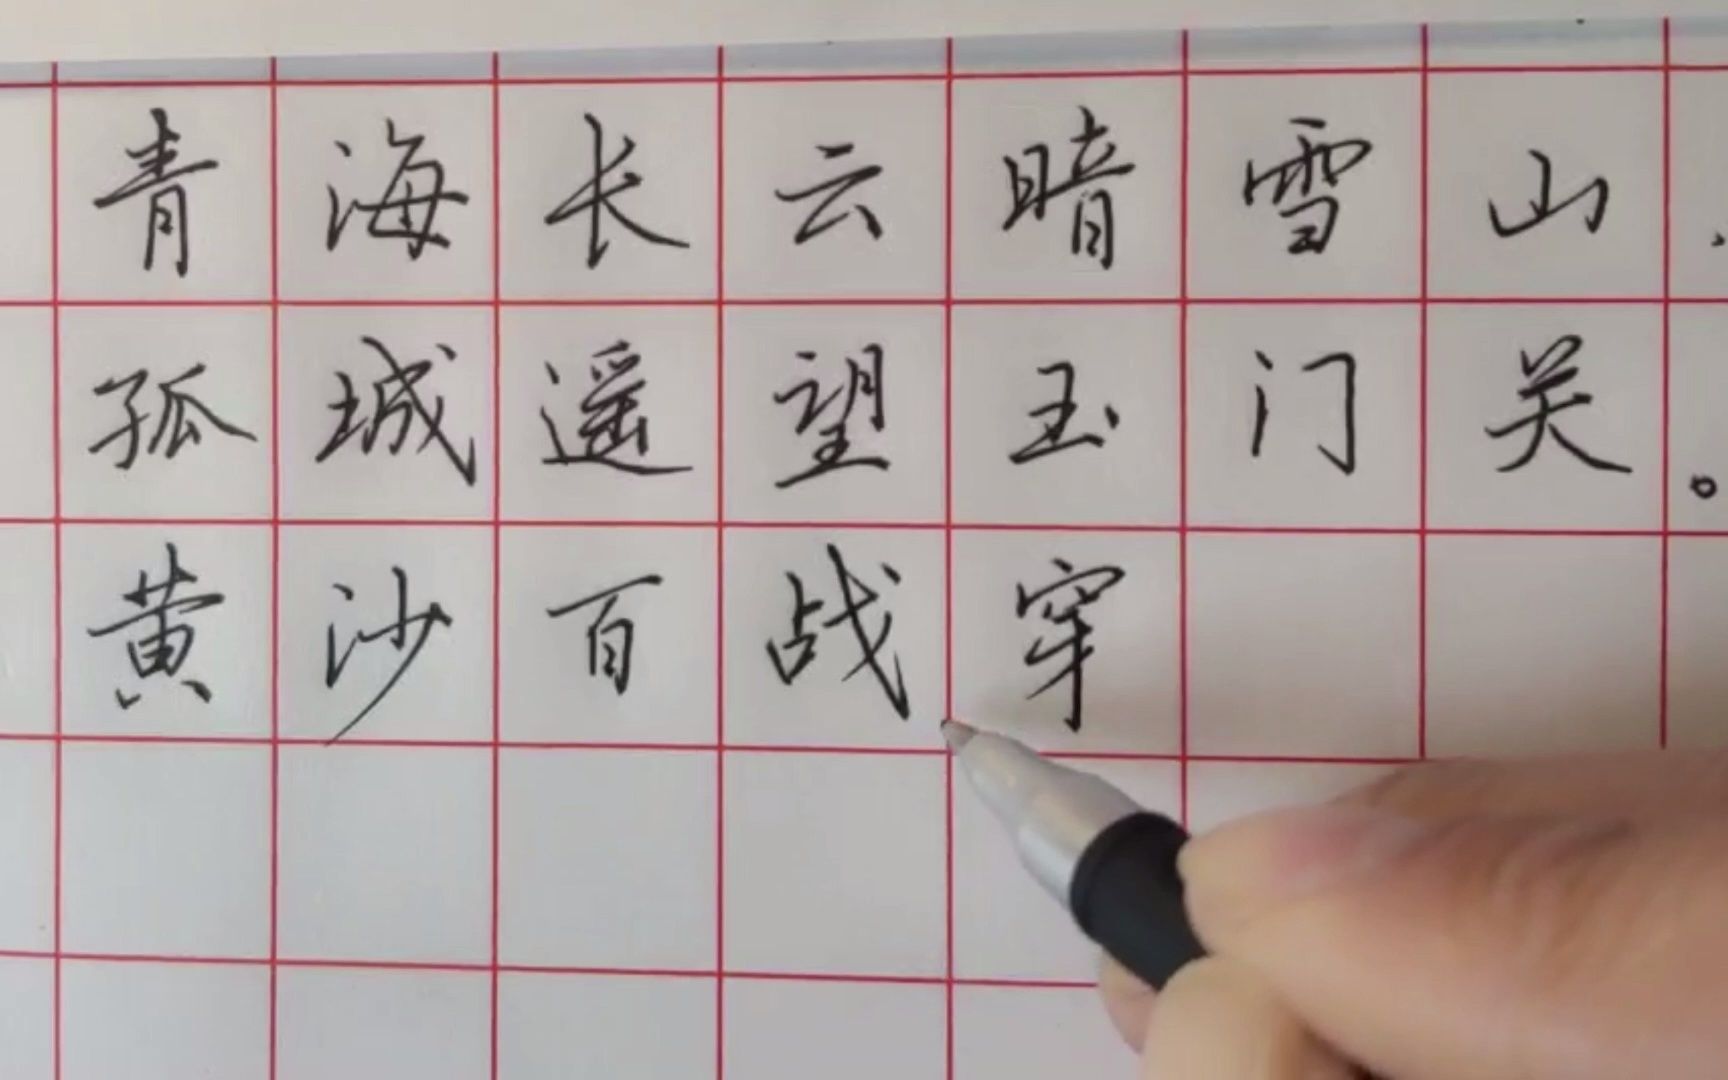 青海长云暗雪山、
孤城遥望玉门关。
黄沙百战穿